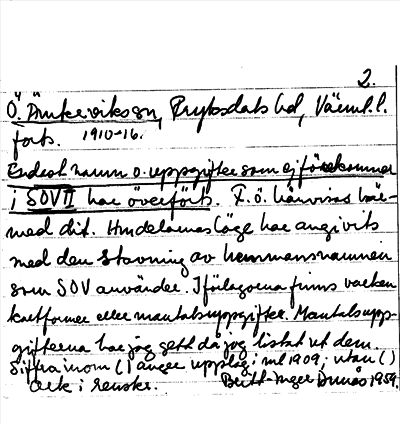 2.
Ö. Ämtervikssn, Fryksdals hd, Värml. l.
forts. 1910-16.
Endast namn o. uppgifter som ej förekommer
i SOV II har överförts. F.ö. hänvisas här-
med dit. Hndelarnas läge har angivits
med den stavning av hemmansnamnen
som SOV använder. I förlagorna finns varken
kartformer eller mantalsuppgifter. Mantalsupp-
gifterna har jag gett då jag listat ut dem.
Siffra inom ( ) anger upplag i ml 1909, utan ( )
ark i renskr. Britt-Inger Dunås 1959.